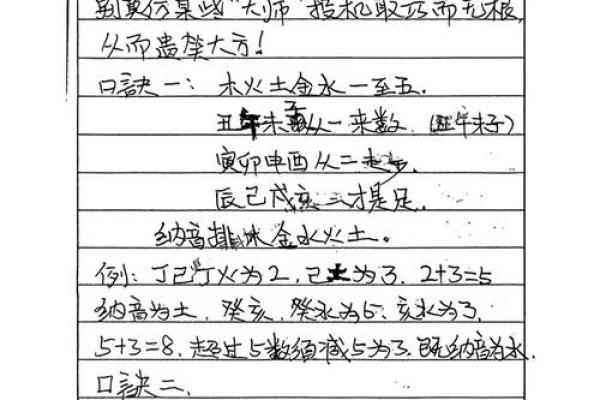 某些"大师"投机取巧而无根,
从而遗笑大方!
口訣一: 木火土金水一至五.
丑午未子从一来数. (丑午未子)
寅卯申酉从二起步.
辰巳戌亥三才是足.
纳音排木金水火土。
例: 丁巳丁火为2, 巳土为3. 2+3=5
纳音为土. 癸亥. 癸水为5. 亥水为3.
5+3=8, 超过5数須减5为3. 既纳音为水.
口訣二.